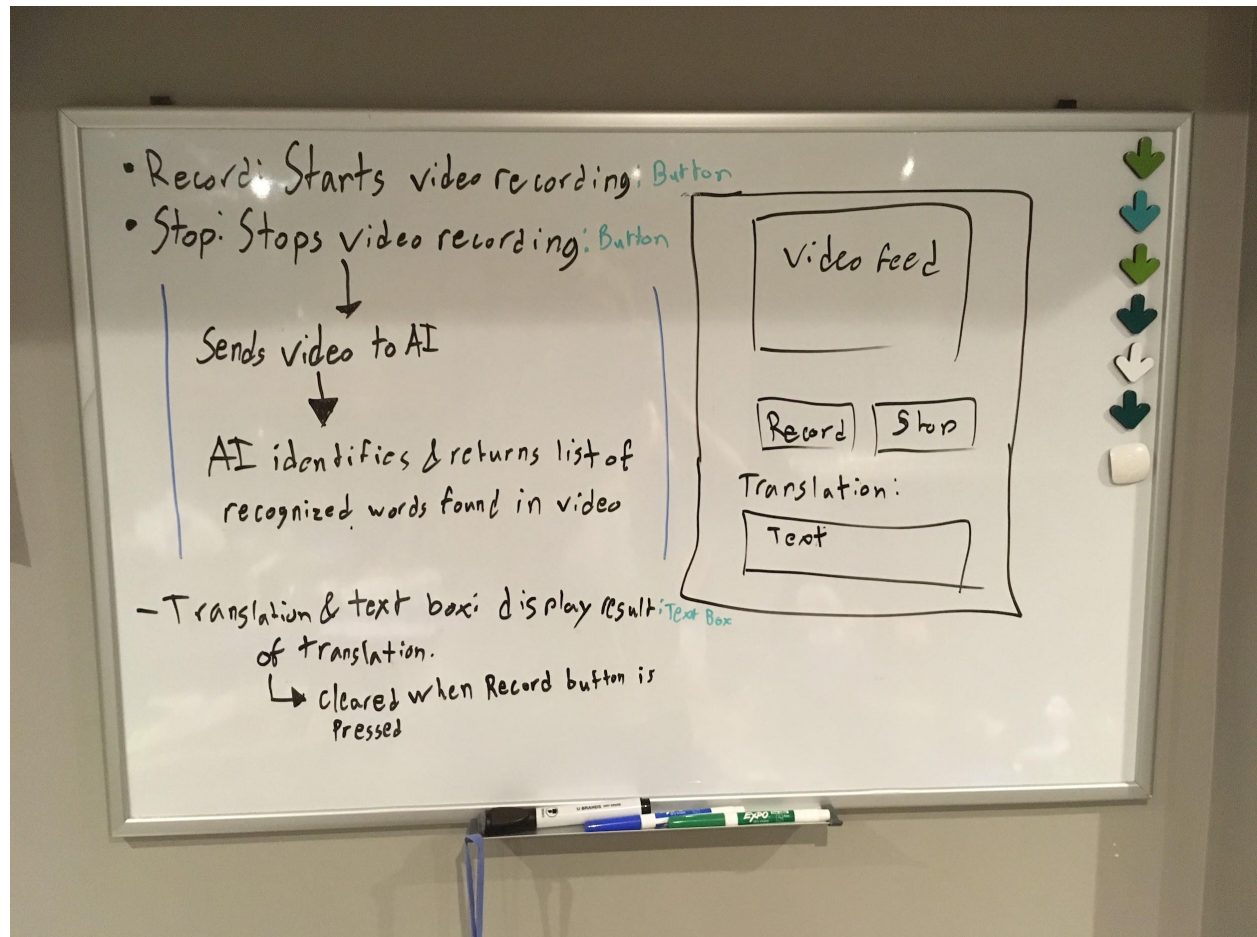 • Record: Starts video recording: Button
• Stop: Stops video recording: Button
Sends video to AI
AI identifies & returns list of
recognized words found in video
- Translation & text box: display result: Text Box
of translation.
cleared when Record button is
Pressed
Video Feed
Record
Stop
Translation:
Text
EXPO